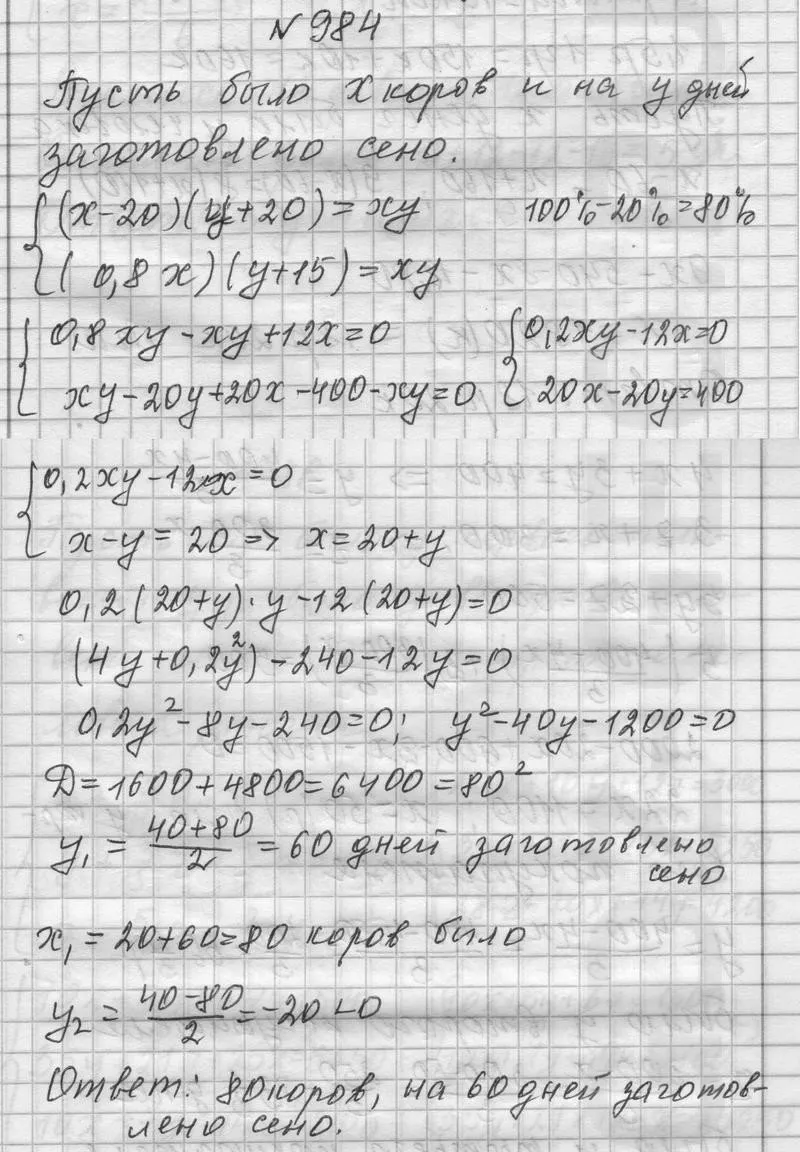 №984
Пусть было x коров и на y дней
заготовлено сено.
(x-20)(y+20)=xy 100%-20%=80%
(0,8x)(y+15)=xy
0,8xy-xy+12x=0 0,2xy-12x=0
xy-20y+20x-400-xy=0 20x-20y=400
0,2xy-12x=0
x-y=20=> x=20+y
0,2(20+y)·y-12(20+y)=0
(4y+0,2y²)-240-12y=0
0,2y²-8y-240=0; y²-40y-1200=0
D=1600+4800=6400=80²
y₁=(40+80)/2=60 дней заготовлено
сено
x₁=20+60=80 коров было
y₂=(40-80)/2=-20<0
Ответ: 80 коров, на 60 дней заготов-
лено сено.